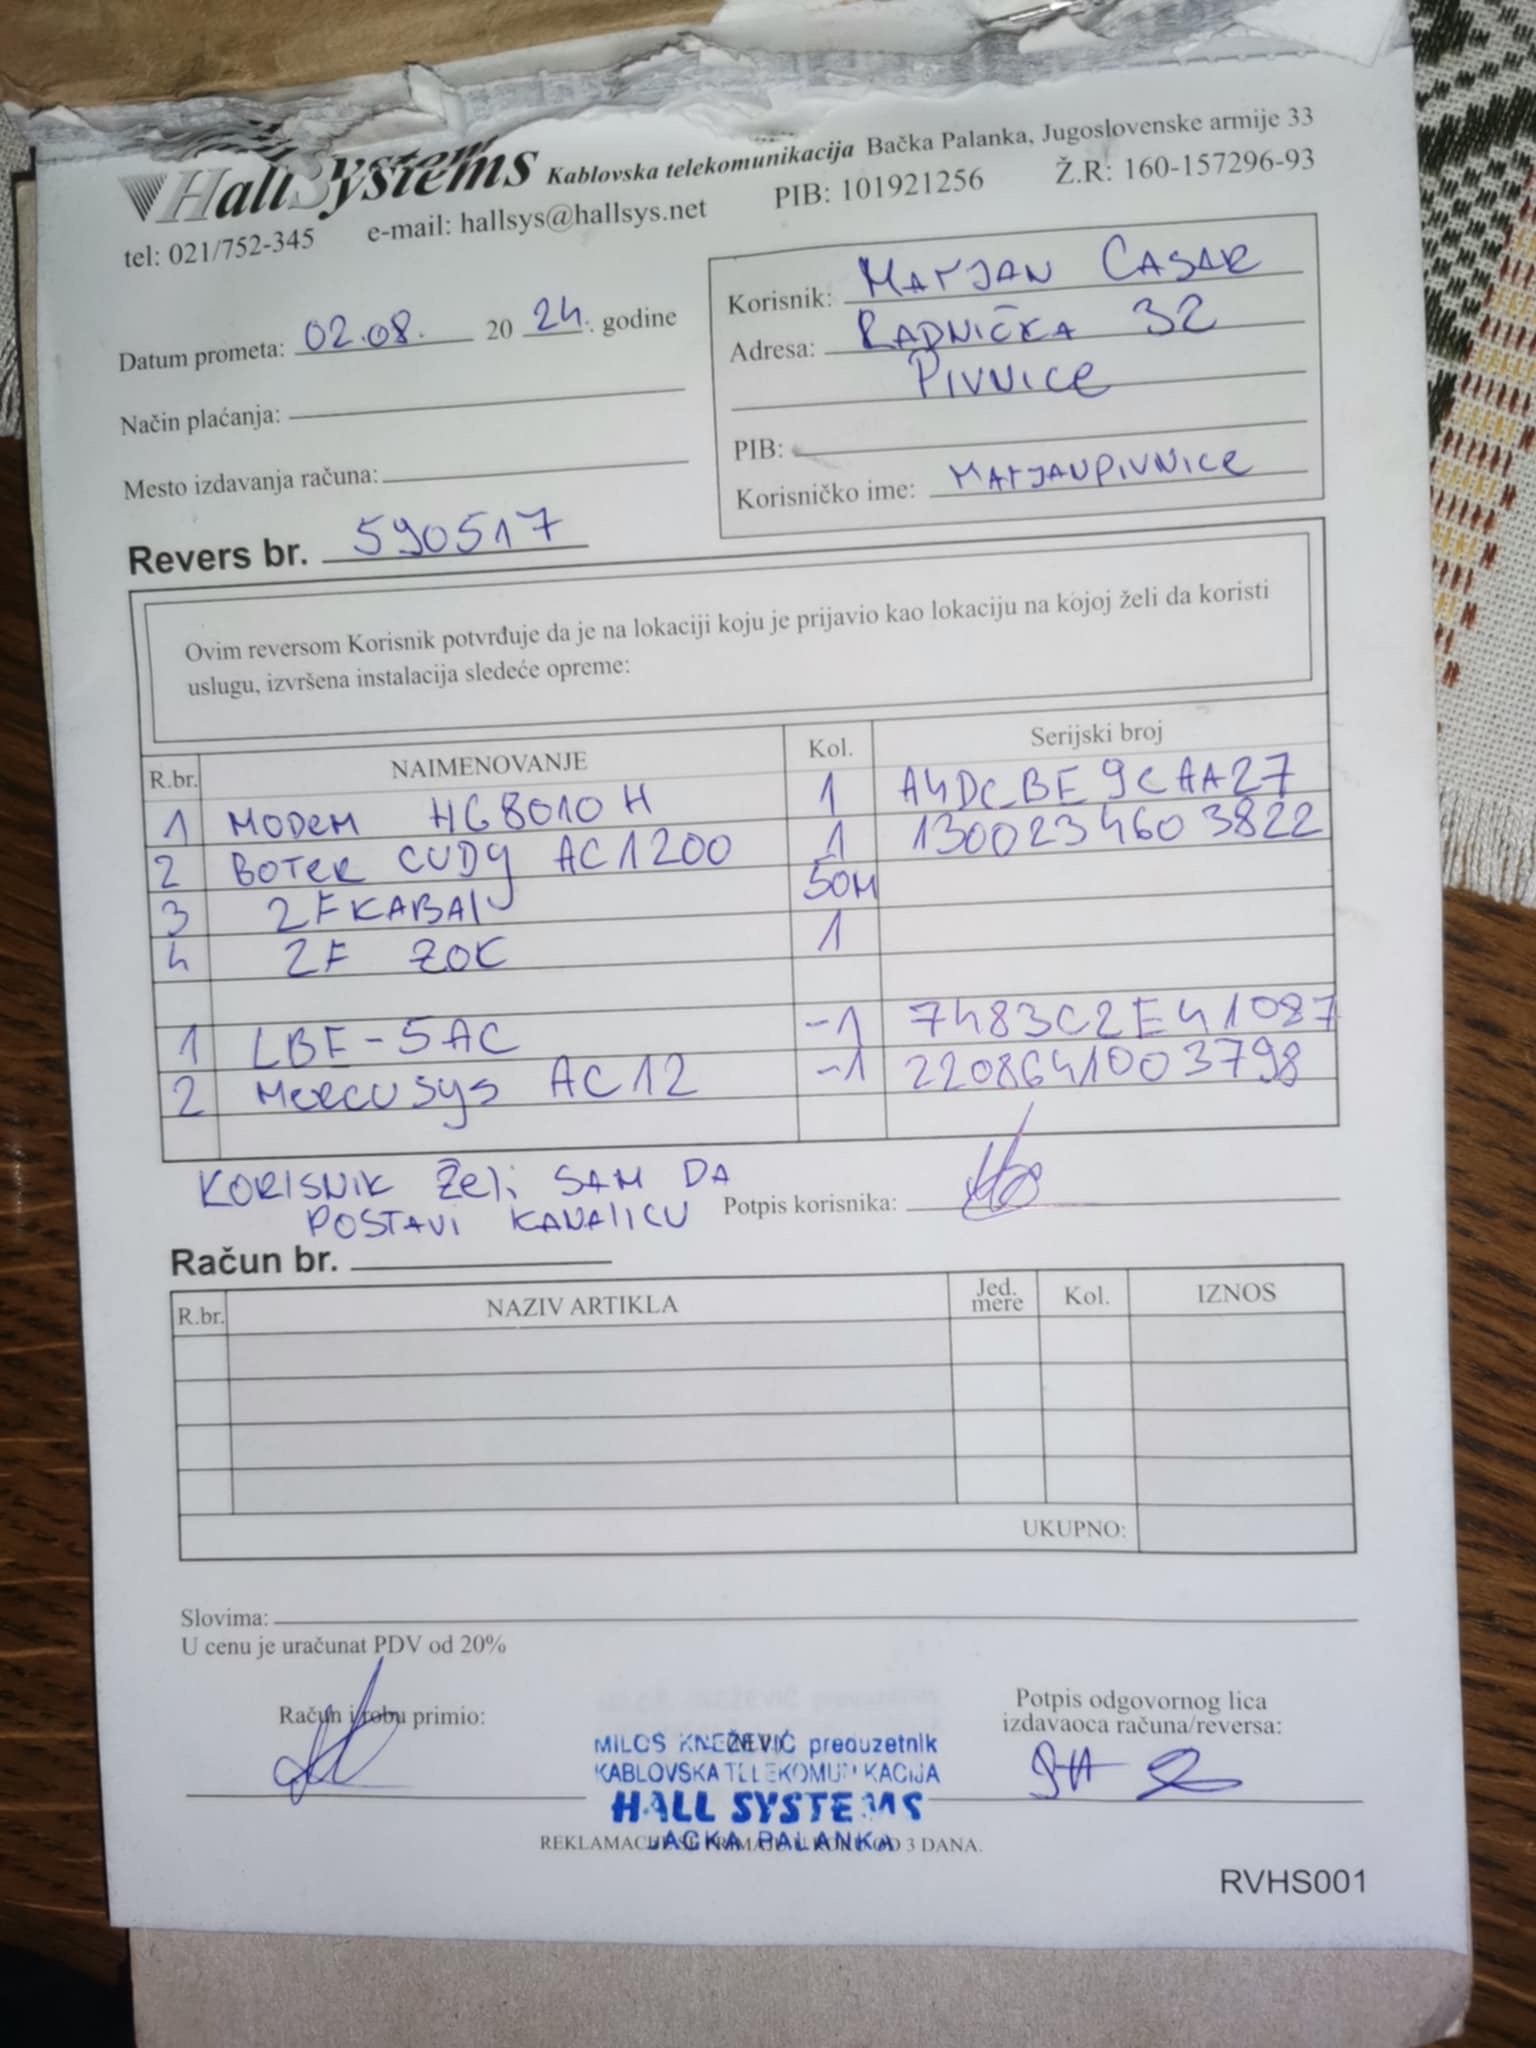 HallSystems Kablovska telekomunikacija Bačka Palanka, Jugoslovenske armije 33
tel: 021/752-345 e-mail: hallsys@hallsys.net PIB: 101921256 Ž.R: 160-157296-93
Korisnik: MARJAN CASAR
Datum prometa: 02.08. 20 24. godine
Adresa: RADNIČKA 32
PIVNICE
Način plaćanja:
PIB:
Mesto izdavanja računa:
Korisničko ime: MARJANPIVNICE
Revers br. 590517
Ovim reversom Korisnik potvrđuje da je na lokaciji koju je prijavio kao lokaciju na kojoj želi da koristi
uslugu, izvršena instalacija sledeće opreme:
R.br. NAIMENOVANJE Kol. Serijski broj
1 MODEM HG8010H 1 A4DCBE9CAA27
2 CUDY AC1200 1 1300234603822
3 2F KABAL 50M
4 2F ZOK 1
1 LBE-5AC -1 7483C2E41087
2 MERCUSYS AC12 -1 2208641003798
KORISNIK ŽELI SAM DA
POSTAVI KANALICU
Potpis korisnika:
Račun br.
R.br. NAZIV ARTIKLA Jed. mere Kol. IZNOS
UKUPNO:
Slovima:
U cenu je uračunat PDV od 20%
Račun i robu primio:
Potpis odgovornog lica
izdavaoca računa/reversa:
MILOŠ KNEŽEVIĆ preduzetnik
KABLOVSKA TELEKOMUNIKACIJA
HALL SYSTEMS
BAČKA PALANKA
REKLAMACIJE SE PRIMAJU U ROKU OD 3 DANA.
RVHS001